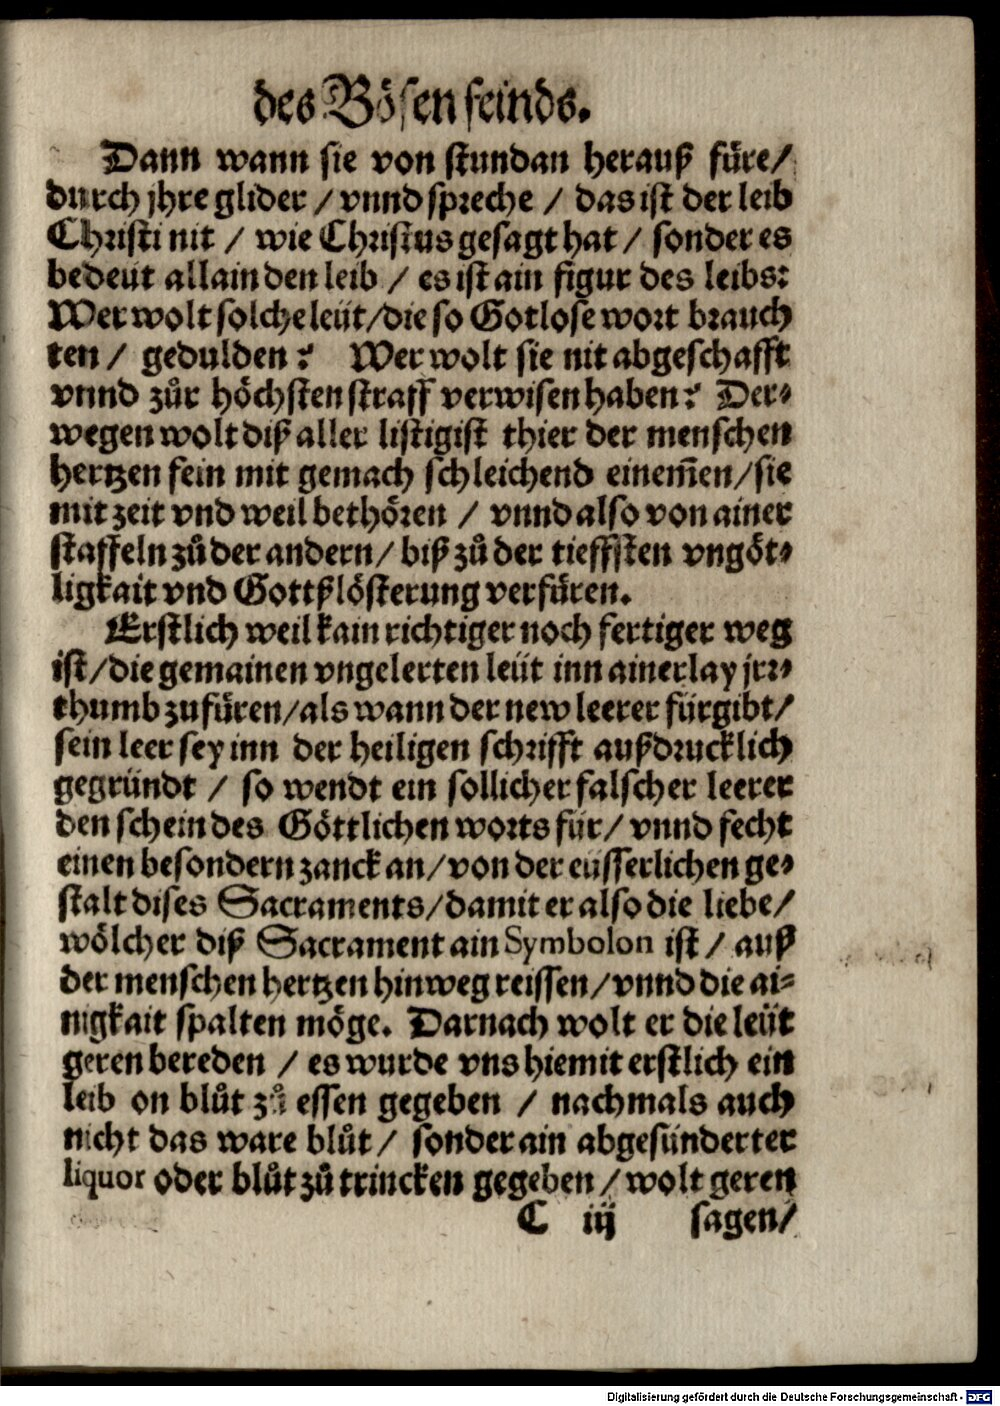 des Bösen feinds.
Dann wann sie von stundan herauß füre/
durch jhre glider / vnnd spreche / das ist der leib
Christi nit / wie Christus gesagt hat / sonder es
bedeüt allain den leib / es ist ain figur des leibs:
Wer wolt solche leüt/die so Gotlose wort brauch
ten / gedulden? Wer wolt sie nit abgeschafft
vnnd zůr höchsten straff verwisen haben? Der⸗
wegen wolt diß aller listigist thier der menschen
hertzen fein mit gemach schleichend einem̃en/sie
mit zeit vnd weil bethören / vnnd also von ainer
staffeln zů der andern/ biß zů der tieffsten vngöt⸗
ligkait vnd Gottßlösterung verfüren.
Erstlich weil kain richtiger noch fertiger weg
ist/die gemainen vngelerten leüt inn ainerlay jrr⸗
thumb zufüren/als wann der new leerer fürgibt/
sein leer sey inn der heiligen schrifft außdrucklich
gegründt / so wendt ein sollicher falscher leerer
den schein des Göttlichen worts für/ vnnd fecht
einen besondern zanck an/von der eüsserlichen ge⸗
stalt dises Sacraments/damit er also die liebe/
wölcher diß Sacrament ain Symbolon ist / auß
der menschen hertzen hinweg reissen/vnnd die ai⸗
nigkait spalten möge. Darnach wolt er die leüt
geren bereden / es wurde vns hiemit erstlich ein
leib on blůt zů essen gegeben / nachmals auch
nicht das ware blůt/ sonder ain abgesünderter
liquor oder blůt zů trincken gegeben / wolt geren
C iij sagen/
Digitalisierung gefördert durch die Deutsche Forschungsgemeinschaft - DFG